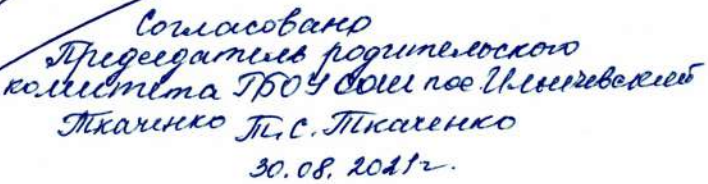 Согласовано
Председатель родительского
комитета ГБОУ СОШ пос. Ильичевский
Ткаченко Т.С. Ткаченко
30.08.2021г.